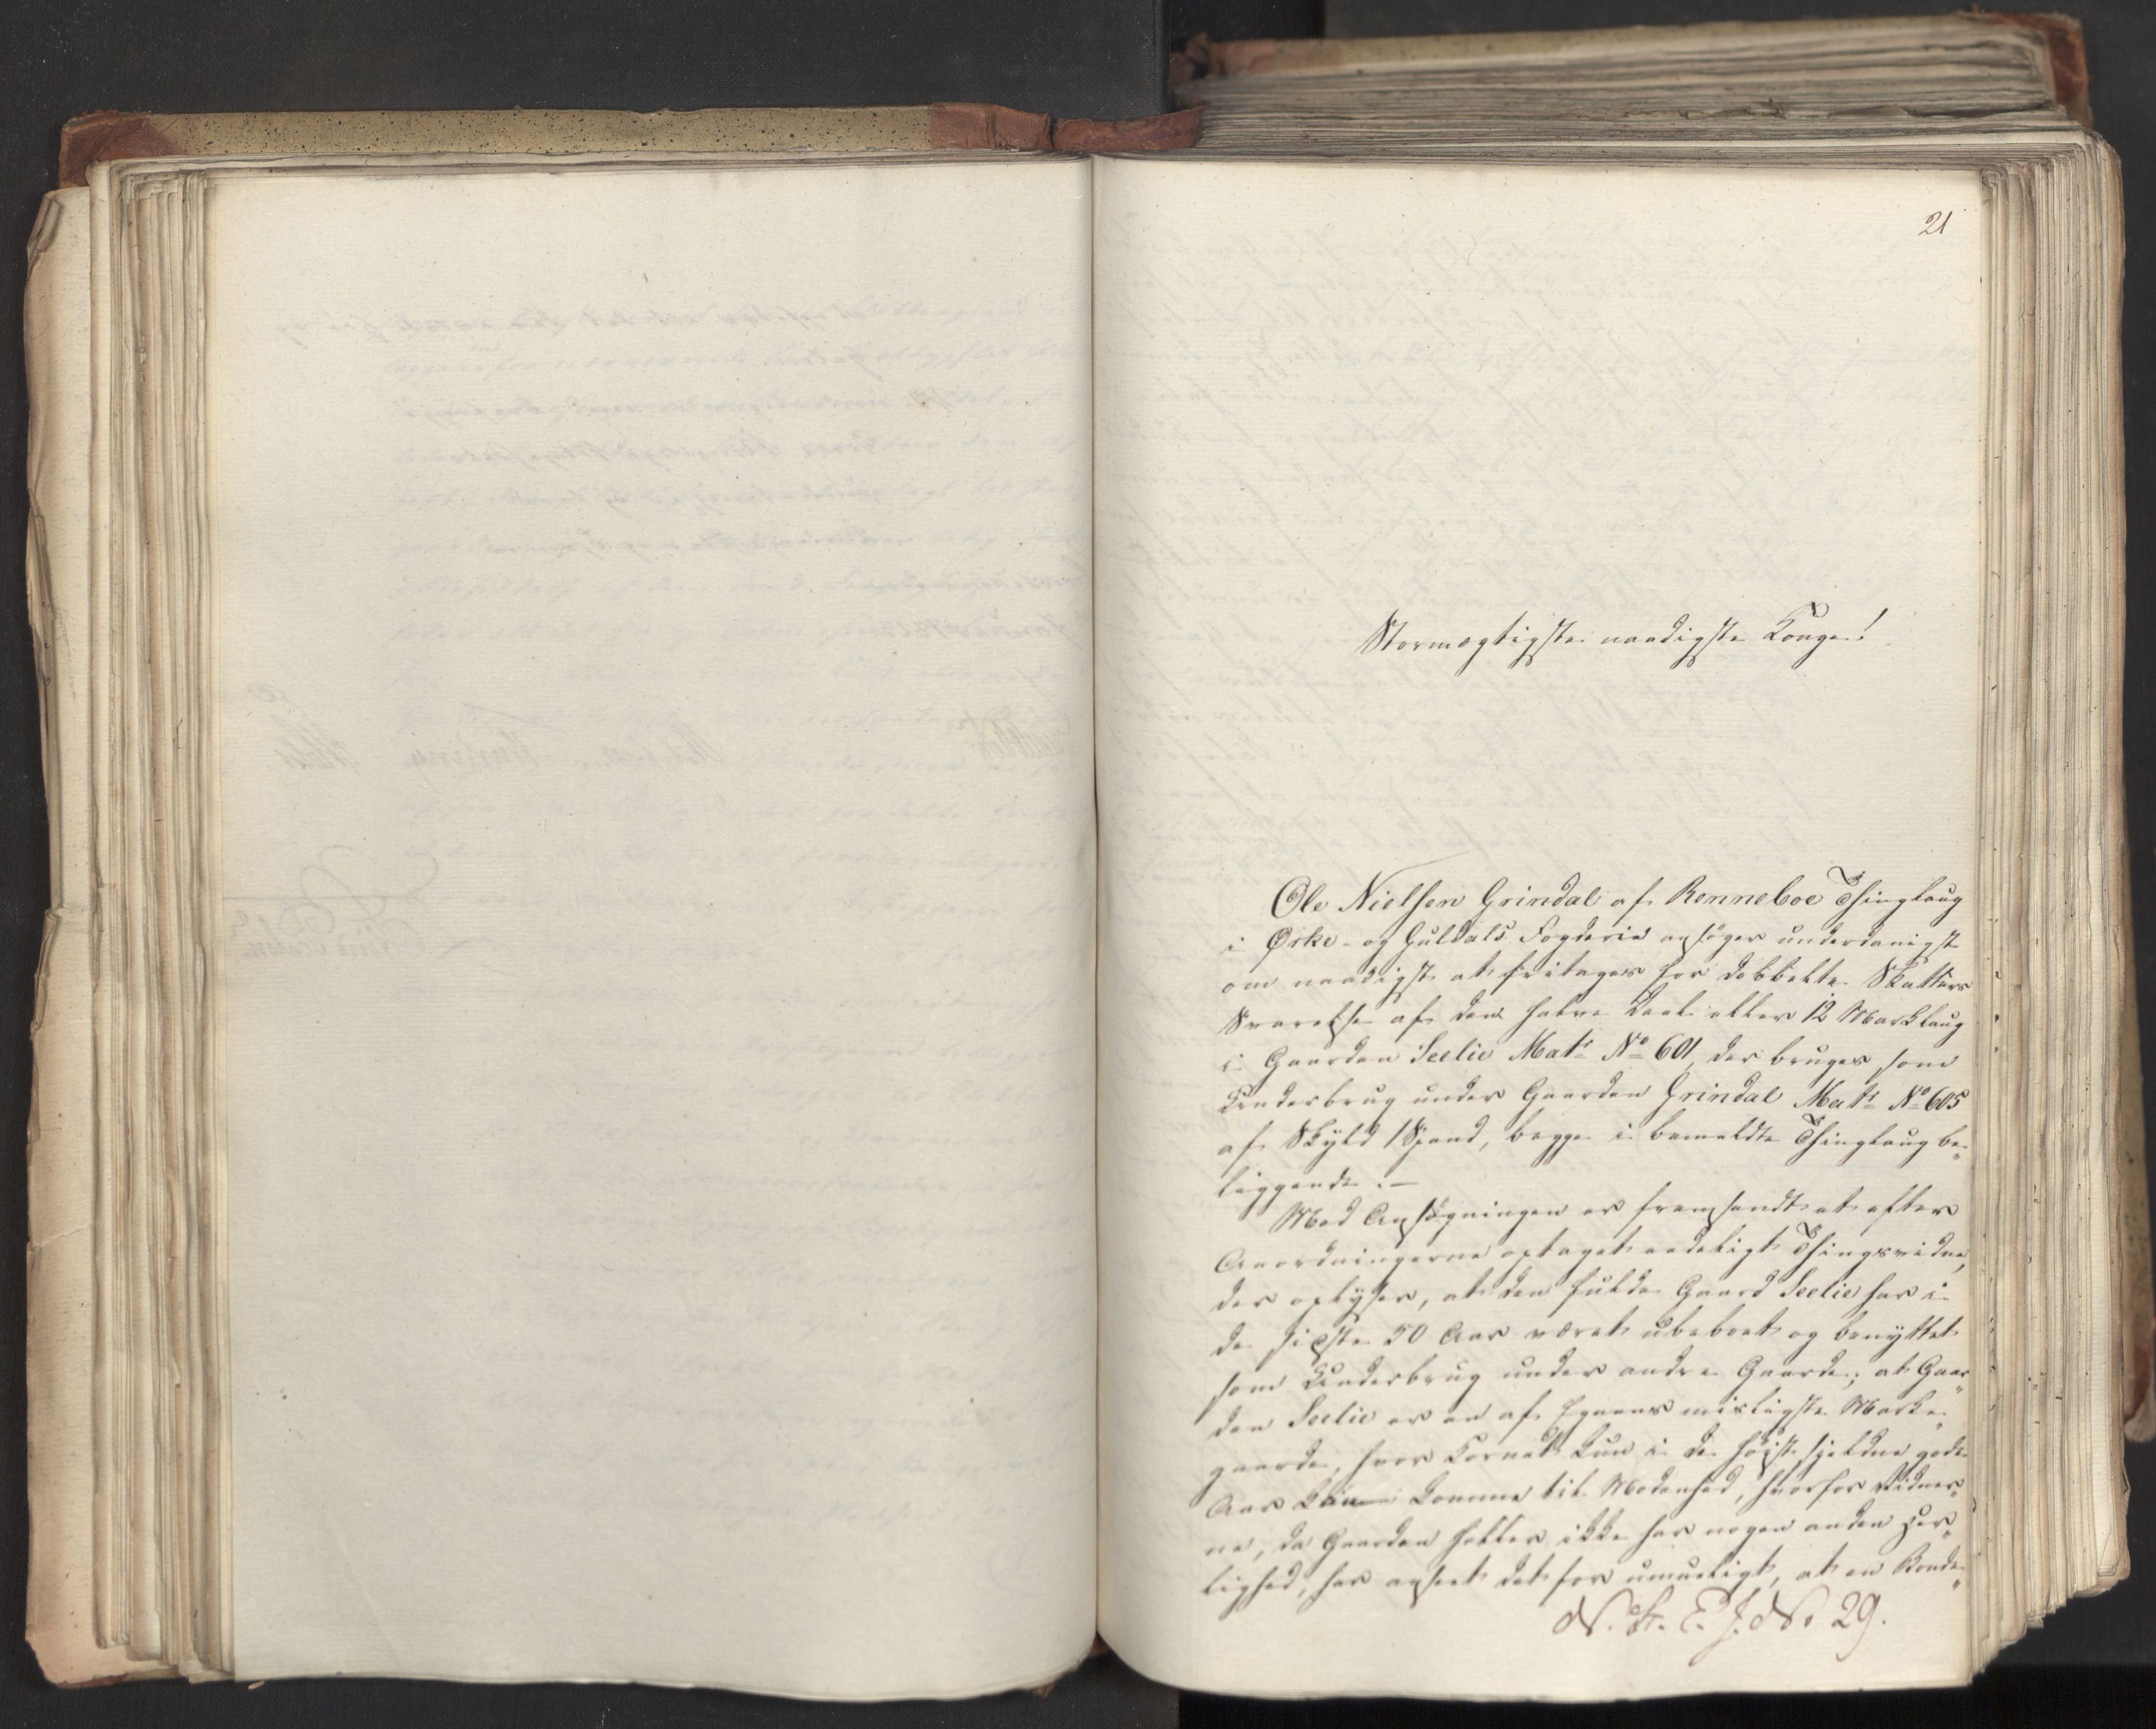 21
Stormægtigste naadigste Konge!
Ole Nielsen Grindal af Renneboe Thinglaug
i Ørke- og Guldals Fogderie ansøger underdanigst
om naadigst at fritages for dobbelte Skatters
Svarelse af den halve Deel eller 12 Marklaug
i Gaarden Seelie Matr No 601, der bruges som
Underbrug under Gaarden Grindal Matr No 605
af Skyld 1 Spand, begge i bemeldte Thinglaug be„
liggende.—
Med Ansøgningen er fremsendt et efter
Anordningerne optaget eedeligt Thingsvidne,
der oplyser, at den fulde Gaard Seelie har i
de sidste 50 Aar været ubeboet og benyttet
som Underbrug under andre Gaarde; at Gaar„
den Seelie er en af Egnens misligste Marke„
gaarde, hvor Kornet kun i de høist sjeldne gode
Aar komme til Modenhed, hvorfor Vidner„
ne, da Gaarden heller ikke har nogen anden Her„
lighed, har anseet det for umueligt, at en Bonde„
No 29.